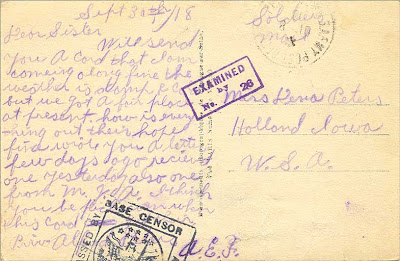 Sept 30th/18
Dear Sister
Will send
you A Card that I am
coming along fine the
weather is damp & C
but we got A fair place
at present how is every
thing out there hope
fine wrote you A letter
few days ago receive
one yesterday also one
from M.
you be
this card
A.E.F.
Soldiers
Mail
EXAMINED
by
No. 26
Mrs Lena Peters
Holland Iowa
U.S.A.
PASSED BY BASE CENSOR